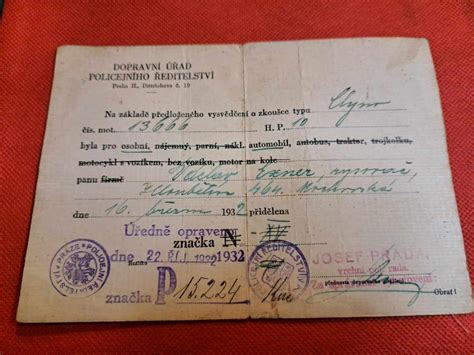 DOPRAVNÍ ÚŘAD
POLICEJNÍHO ŘEDITELSTVÍ
Praha II., Dittrichova č. 19
Na základě předloženého vysvědčení o zkoušce typu
čís. mot. 13666 H. P. 10
byla pro osobní, nájemný, parní, nákl. automobil, autobus, traktor, trojkolku,
motocykl s vozíkem, bez vozíku, motor na kole
panu firmě Václav Exner,
464.
dne 16. března 1932 přidělena
Úředně opraveno
značka N
dne 22. ŘÍJ. 1932
značka P 15.224
JOSEF PRADA
vrchní pol. rada.
přednosta dopravního úřadu.
Obrať!